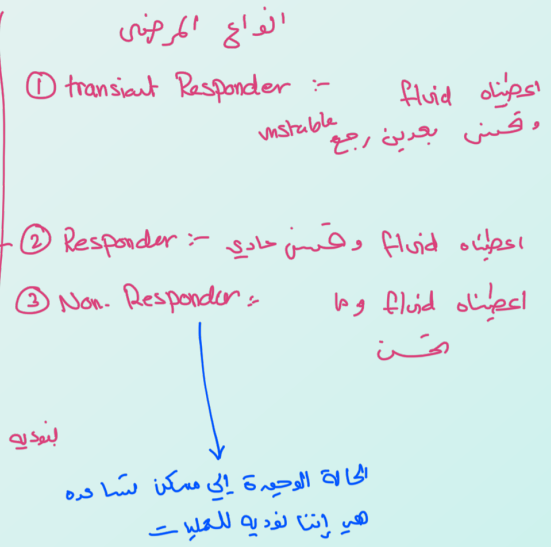 انواع المرضى
① transient Responder :- اعطيناه fluid
وتحسن بعدين رجع unstable
② Responder :- اعطيناه fluid وتحسن عادي
③ Non. Responder :- اعطيناه fluid وما
تحسن
بنوديه
الحالة الوحيدة إلي ممكن تساعده
هي إننا نوديه للعمليات